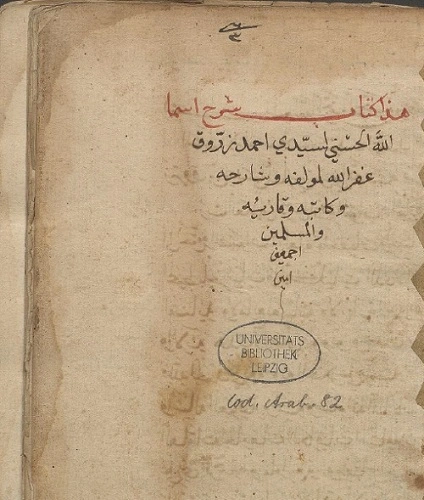 هذا كتاب شرح اسما
الله الحسنى لسيدي احمد زروق
غفر الله لمولفه وشارحه
وكاتبه وقاريه
والمسلمين
اجمعين
امين
UNIVERSITÄTS
BIBLIOTHEK
LEIPZIG
Cod. Arab. 82